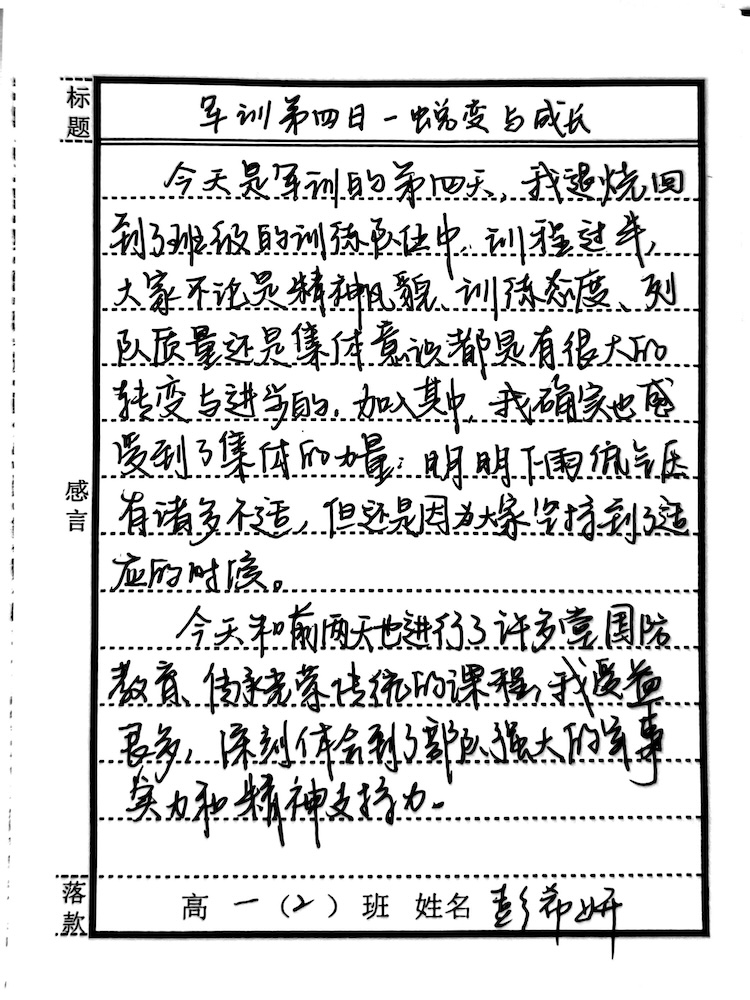 标题
军训第四日—蜕变与成长
感言
今天是军训的第四天，我退烧回
到了班级的训练队伍中。训程过半，
大家不论是精神风貌、训练态度、列
队质量还是集体意识都是有很大的
转变与进步的。加入其中，我确实也感
受到了集体的力量：明明下雨低气压
有诸多不适，但还是因为大家坚持到了适
应的时候。
今天和前两天也进行了许多堂国防
教育、传承光荣传统的课程，我受益
良多，深刻体会到了部队强大的军事
实力和精神支持力。
落款
高一（2）班 姓名 彭希妍